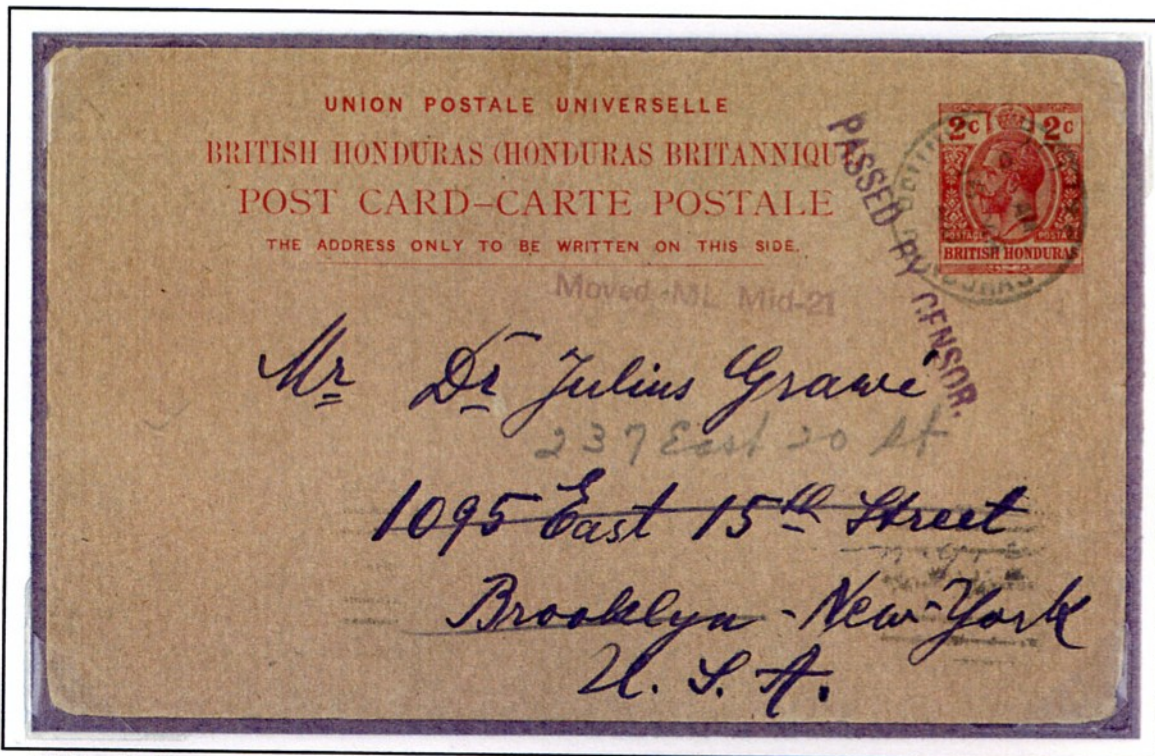 UNION POSTALE UNIVERSELLE
BRITISH HONDURAS (HONDURAS BRITANNIQU
POST CARD–CARTE POSTALE
THE ADDRESS ONLY TO BE WRITTEN ON THIS SIDE.
2c 2c
POSTAGE POSTAGE
BRITISH HONDURAS
PASSED BY CENSOR.
Moved-ML Mid-21
Mr Dr Julius Grawe
237 East 20 St
1095 East 15th Street
Brooklyn - New-York
U. S. A.